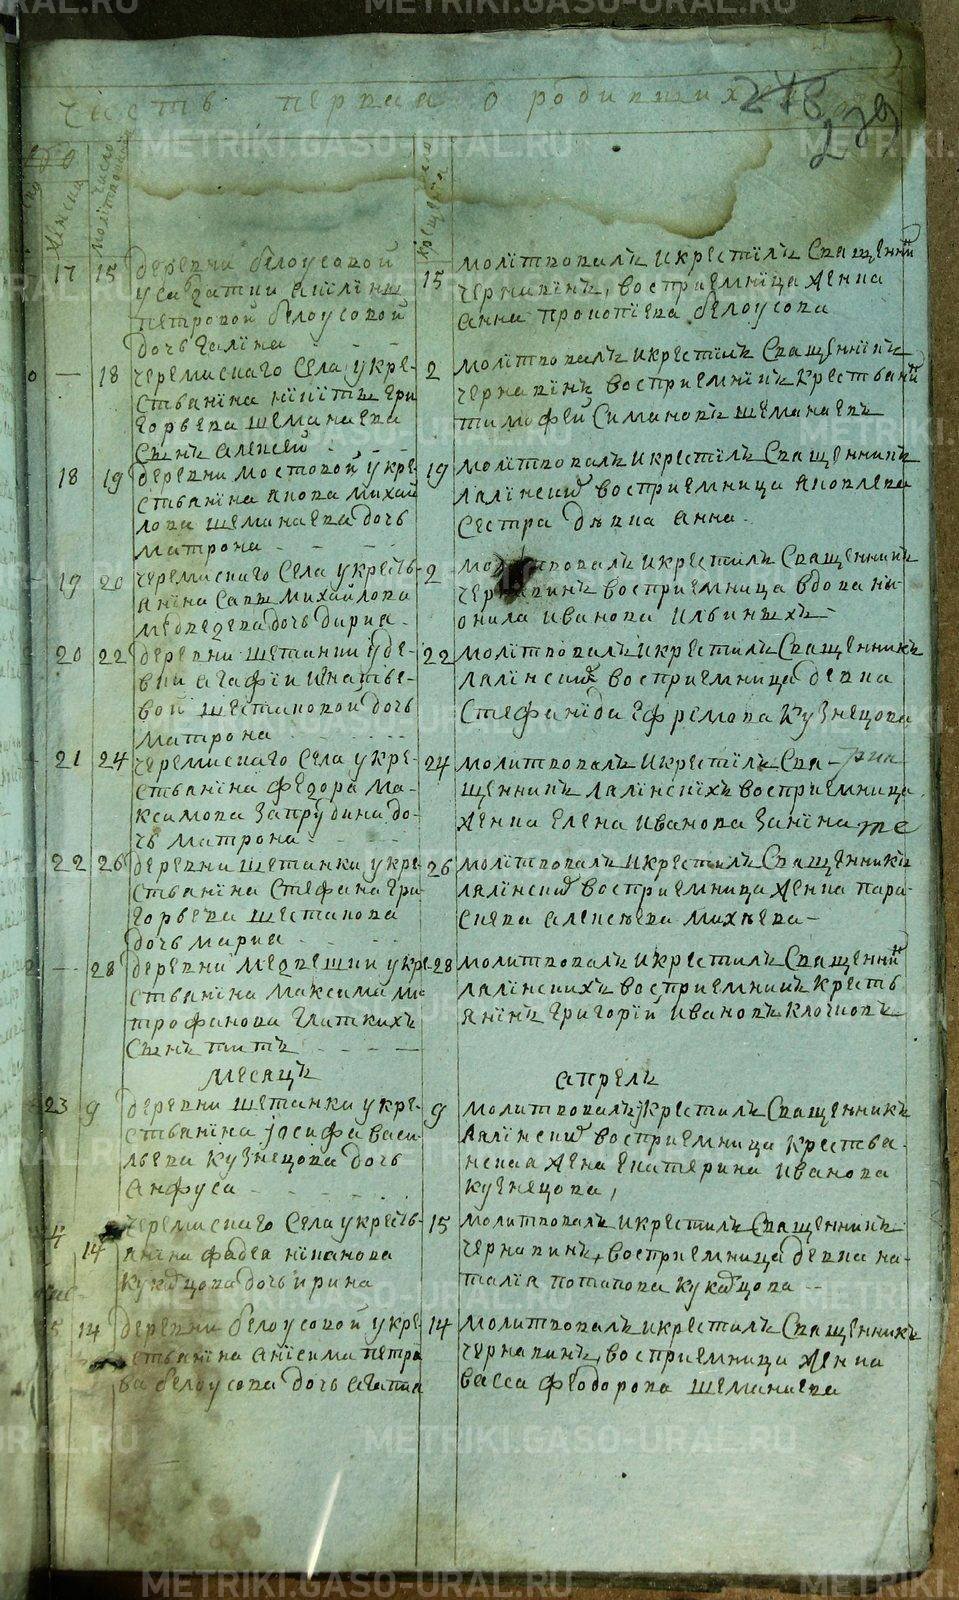 METRIKI.GASO-URAL.RU
часть первая о родившихся
278
239
число
женска
число молитвования
число крещения
17 15 деревни белоусовой
у салдатки акилины
петровой белоусовой
дочь галина
15 молитвовалъ и крестилъ священникъ
чернавинъ, восприемница женка
анна прокопиева белоусова
— 18 черемискаго села у кре-
стьянина никиты гри
горьева шеманаева
сынъ алексей
2 молитвовалъ и крестилъ священникъ
чернавинъ восприемникъ крестьянинъ
тимофей симановъ шеманаевъ
18 19 деревни мостовой у кре-
стьянина якова михай
лова шеманаева дочь
матрона
19 молитвовалъ и крестилъ священникъ
лялинский восприемница яковлева
сестра девка анна
19 20 черемискаго села у кресть-
янина савы михайлова
медведева дочь дария
2 молитвовалъ и крестилъ священникъ
чернавинъ восприемница вдова ни-
онила иванова ильиныхъ
20 22 деревни шетанки у де-
вки агафии игнатье-
вой шестаковой дочь
матрона
22 молитвовалъ и крестилъ священникъ
лялинский восприемница девка
стефанида ефремова кузнецова
21 24 черемискаго села у кре-
стьянина федора ма-
ксимова запрудина до-
чь матрона
24 молитвовалъ и крестилъ свя-
щенникъ лялинскихъ восприемница
женка елена иванова занина
22 26 деревни шетанки у кре-
стьянина стефана гри
горьева шестакова
дочь мариа
26 молитвовалъ и крестилъ священникъ
лялинский восприемница женка пара
скева алексеева михеева
— 28 деревни медвешки у кре-
стьянина максима ми
трофанова глаткихъ
сынъ титъ
28 молитвовалъ и крестилъ священникъ
лялинскихъ восприемникъ кресть
янинъ григорий ивановъ клочковъ
месяцъ апрель
23 9 деревни шетанки у кре-
стьянина иосифа васи
льева кузнецова дочь
анфуса
9 молитвовалъ и крестилъ священникъ
лялинский восприемница крестья-
нская жена екатерина иванова
кузнецова,
4 14 черемискаго села у кресть-
янина фадея никанова
кукарцова дочь ирина
15 молитвовалъ и крестилъ священникъ
чернавинъ, восприемница девка на-
талия потапова кукарцова
5 14 деревни белоусовой у кре-
стьянина анисима петро
ва белоусова дочь агапиа
14 молитвовалъ и крестилъ священникъ
чернавинъ, восприемница женка
васса феодорова шеманаева